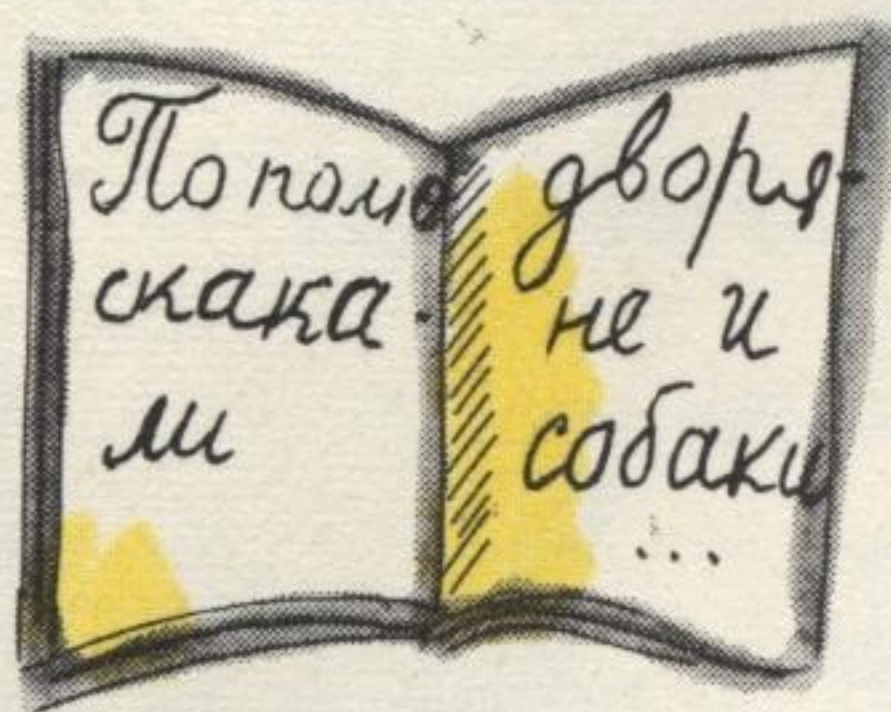 По пото
скака-
ли
дворя-
не и
собаки
...